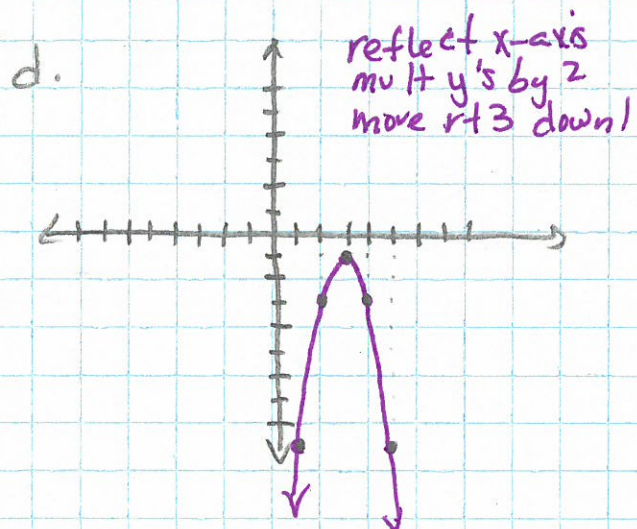 d.
reflect x-axis
mult y's by 2
move rt 3 down 1